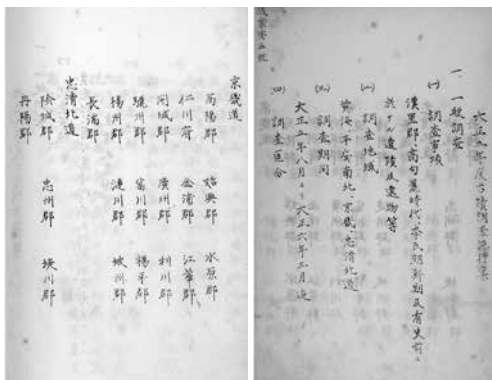 大正五年度古蹟調査
一、一般調査
(一) 調査事項
漢置郡、高句麗時代、李氏朝鮮期及有史前ニ
於ケル遺蹟及遺物等
(二) 調査地域
黄海、平安南北、京畿、忠清北道
(三) 調査期間
大正五年八月ヨリ大正六年三月迄
(四) 調査區分
京畿道
高陽郡 始興郡 水原郡
仁川府 金浦郡 江華郡
開城郡 廣州郡 利川郡
驪州郡 富川郡 楊平郡
楊州郡 漣川郡 坡州郡
長湍郡
忠清北道
陰城郡 忠州郡 堤川郡
丹陽郡